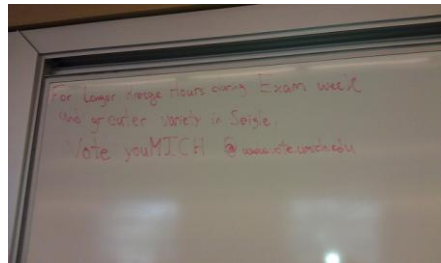 For Longer Hours during Exam week
and greater variety in
Vote youMICH @ www.vote.umich.edu